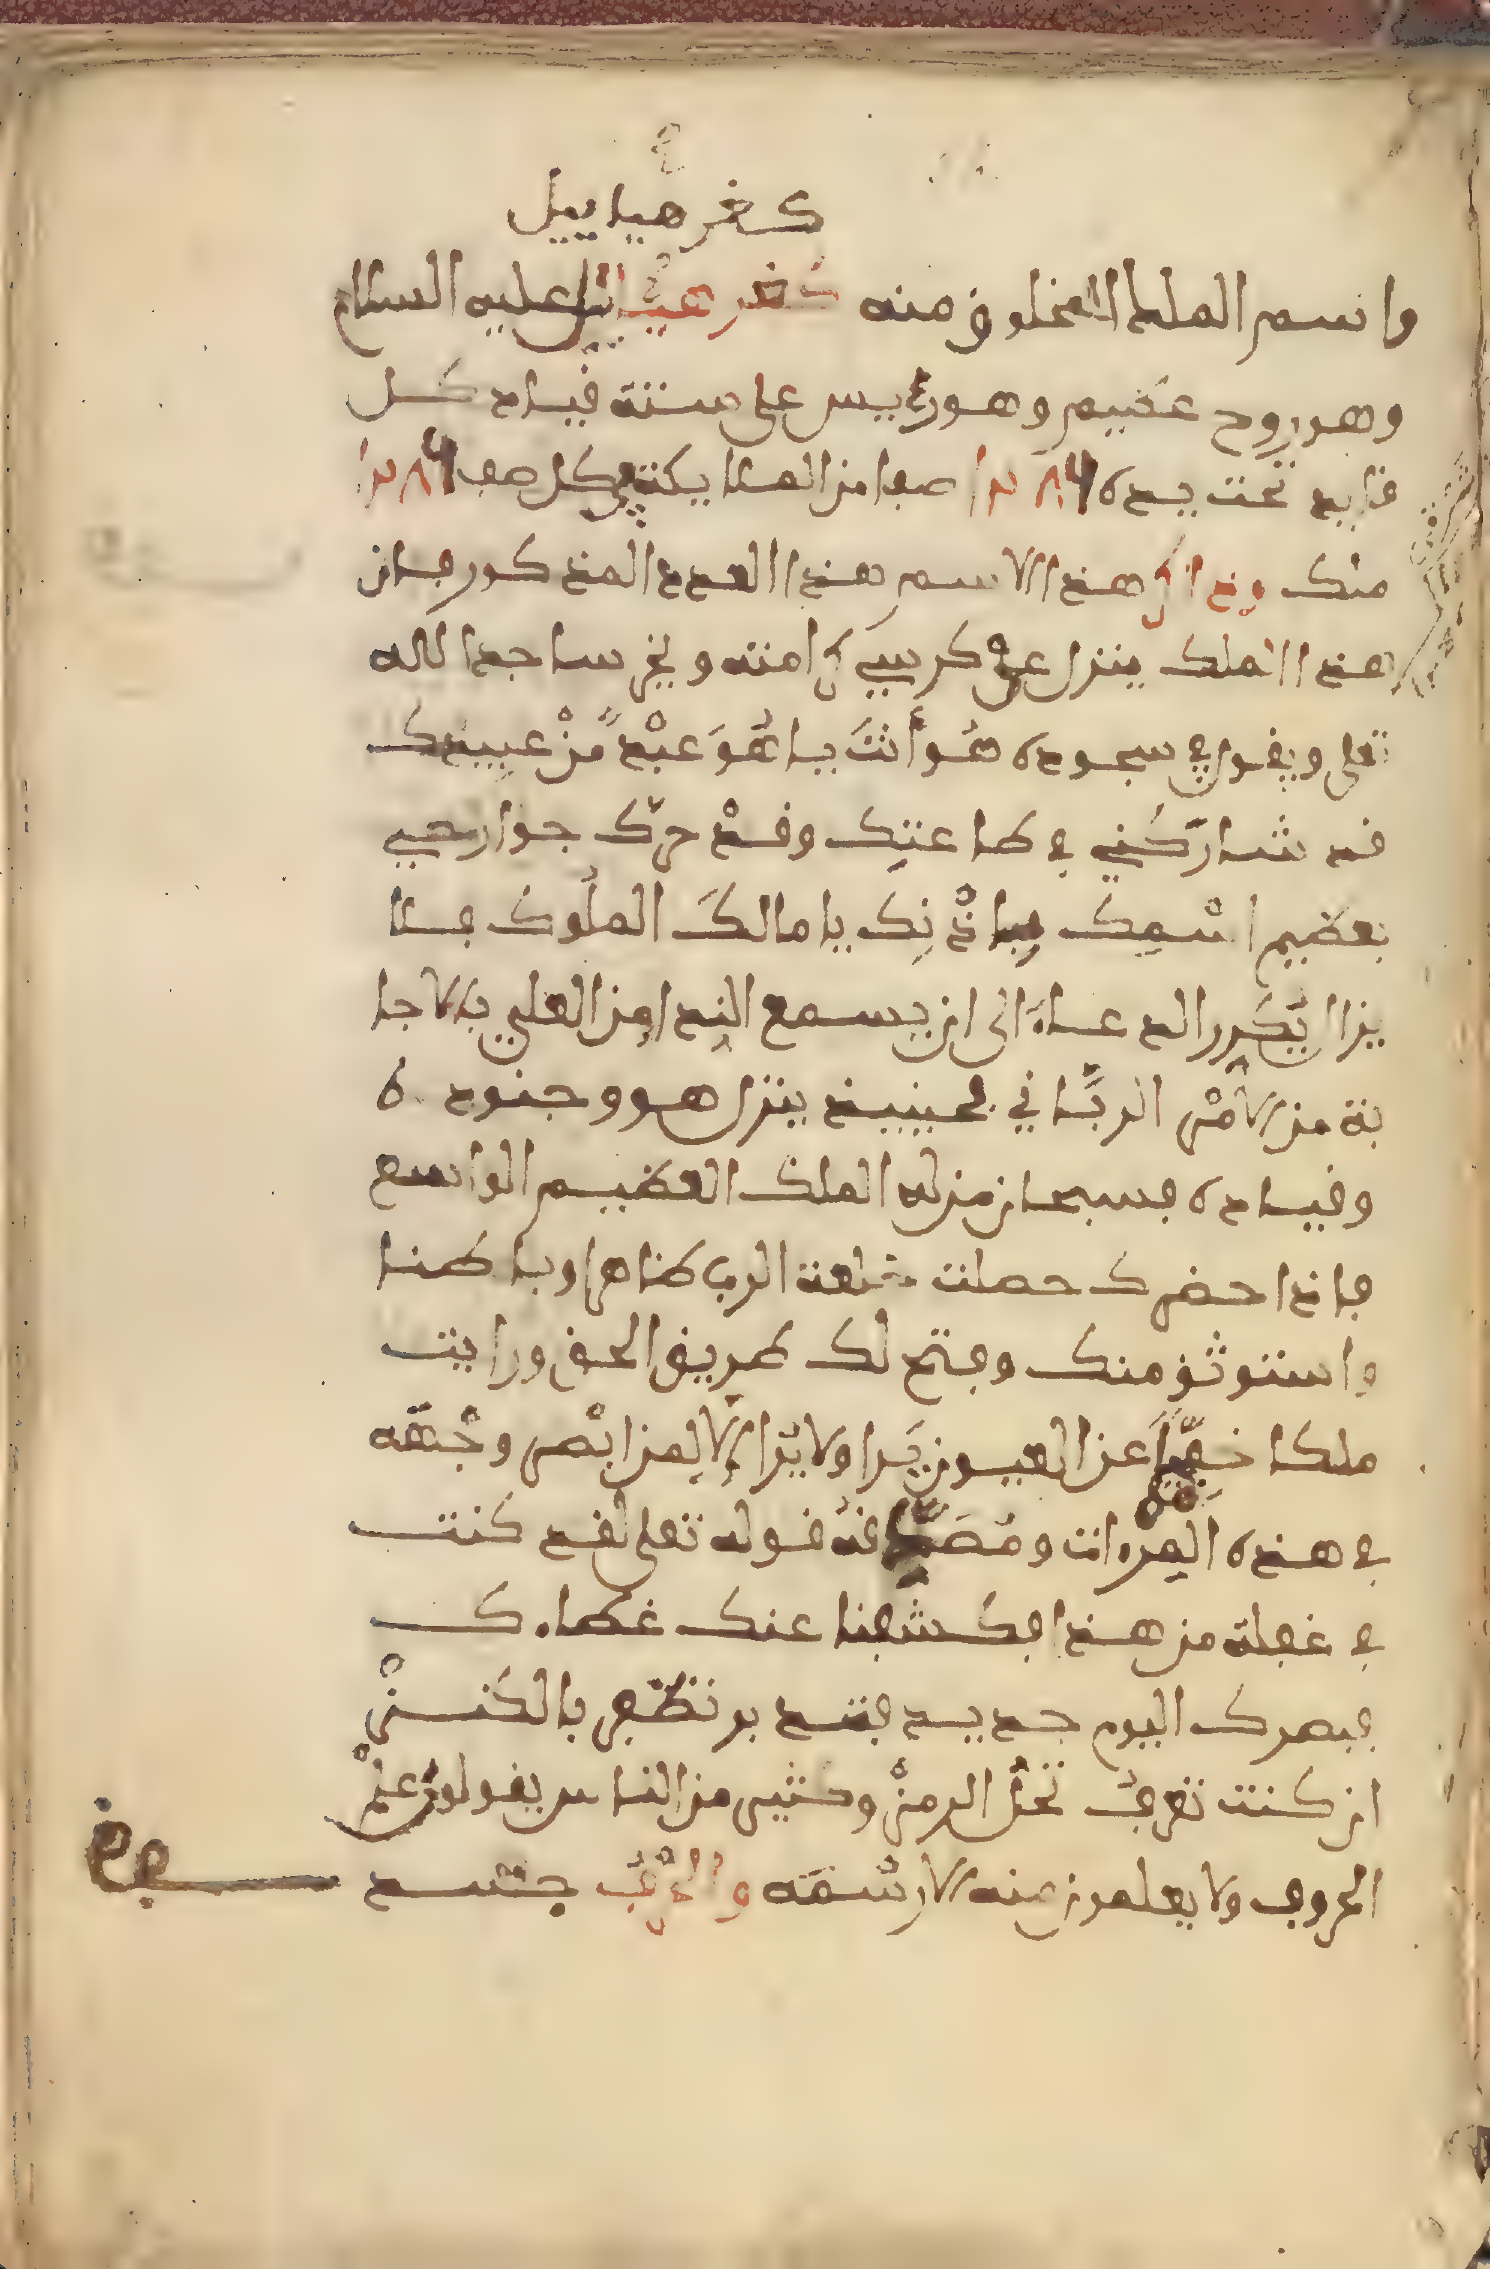 كغر هيا ييل
واسم الملك المخلوق منه كغر هيائيل عليه السلام
وهو روح عظيم وهو رئيس على ستة قياد كل
قايد تحت يده ٨٤ صفا من الملائكة وكل صف ٨٤
ملك وذاكر هذا الاسم هذا العدد المذكور فان
هذا الملك ينزل على كرسي كرامته ويخر ساجدا لله
تعلى ويقول في سجوده هُوَ أنْتَ يا هُوَ عبْدٌ مّنْ عبيدك
قد شاركني في طاعتك وقدْ حرّك جوارحي
بعظيم اسْمك فبإذْنِك يا مالكَ الملُوك فلا
يزال يُكَرِر الدعاءَ الى ان يسمع النِدا من العلي بالاجا
بة من الامْر الربّاني فحينيذ ينزل هو وجنوده
وقياده فسبحان من له الملك العظيم الواسع
فاذا حضرك حصلت خلعة الرب ظاهرا وباطنا
واستوثق منك وفتح لك طريق الحق ورايت
ملكا خفيّاً عن العيون يَرا ولا يُرا إلّا لِمن ابْصر وجْهَه
في هذه المِرْءات ومُصَدّاقه قوله تعلى لقد كنت
في غفلة من هذا فكشفنا عنك غطاءك
فبصرك اليوم حديد فتدبر تظْفر بالكنزْ
ان كنت تعرفُ تحُلّ الرمزْ وكثير من الناس يقولون علمْ
الحروف ولا يعلمون منه الا رسْمَه والحُرْفُ جسد
وفي